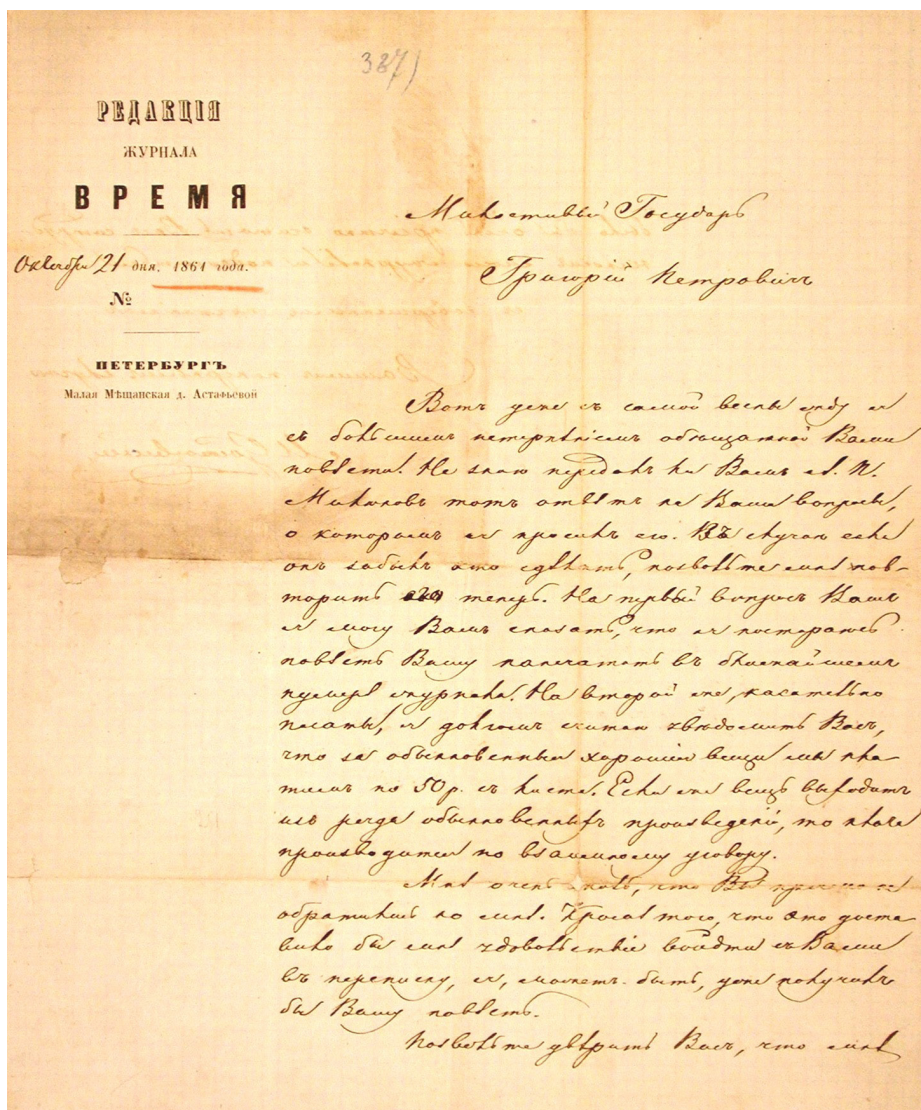 387)
РЕДАКЦІЯ
ЖУРНАЛА
ВРЕМЯ
Октября 21 дня, 1861 года.
№
ПЕТЕРБУРГЪ
Малая Мѣщанская д. Астафьевой
Милостивый Государь
Григорій Петровичъ
Вотъ уже съ самой весны жду я
съ большимъ нетерпѣніемъ обѣщанной Вами
повѣсти. Не знаю передалъ ли Вамъ А. П.
Милюковъ тотъ отвѣтъ на Ваши вопросы,
о которомъ я просилъ его. Въ случаѣ если
онъ забылъ это сдѣлать, позвольте мнѣ пов-
торить его теперь. На первый вопросъ Вашъ
я могу Вамъ сказать, что я постараюсь
повѣсть Вашу напечатать въ ближайшемъ
нумерѣ журнала. На второй же, касательно
платы, я долгомъ считаю увѣдомить Васъ,
что за обыкновенныя хорошія вещи мы пла-
тимъ по 50 р. съ листа. Если же вещь выходитъ
изъ ряда обыкновенныхъ произведеній, то плата
производится по взаимному уговору.
Мнѣ очень жаль, что Вы прямо не
обратились ко мнѣ. Кромѣ того, что это доста
вило бы мнѣ удовольствіе войдти съ Вами
въ переписку, я, можетъ быть, уже получилъ
бы Вашу повѣсть.
Позвольте увѣрить Васъ, что мнѣ